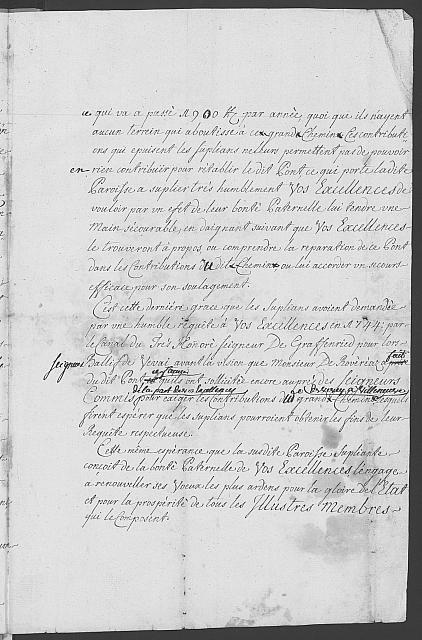 ce qui va a passé 1900 ₶ par année quoi que ils n'ayent
aucun terrein qui aboutisse à ce grand Chemin Ces contributi
ons qui epuisent les suplians ne leurs permettent pas de pouvoir
en rien contribuir pour rétablir le dit Pont ce qui porte la dite
Paroisse a suplier très humblement Vos Excellences de
vouloir par un efet de leur bonté Paternelle lui tendre une
main sécourable, en daignant suivant que Vos Excellences
le trouveront à propos ou comprendre la réparation de ce Pont
dans les Contributions du dit Chemin ou lui accorder un secours
efficace pour son soulagement.
C'est cette derniére grace que les Suplians avoient demandée
par une humble requête à Vos Excellences en 1744; par
le canal du Très Honoré Seigneur De Graffenried pour lors
Seigneur Ballif de Vevai, avant la vision que Monsieur De Rovéréa fait
du dit Pont et qu'ils ont sollicitée encore auprès des Seigneurs
de la part de vos Excellences
Commis pour exiger les contributions du grand Chemin lesquels
firent espérer que les suplians pourroient obtenir les fins de leur
Requête respectueuse.
Cette même espérance que la susdite Paroisse supliante
conçoit de la bonté Paternelle de Vos Excellences l'engage
a renouveller ses Voeux les plus ardens pour la gloire de l'Etat
et pour la prospérité de tous les Illustres Membres
qui le Composent.